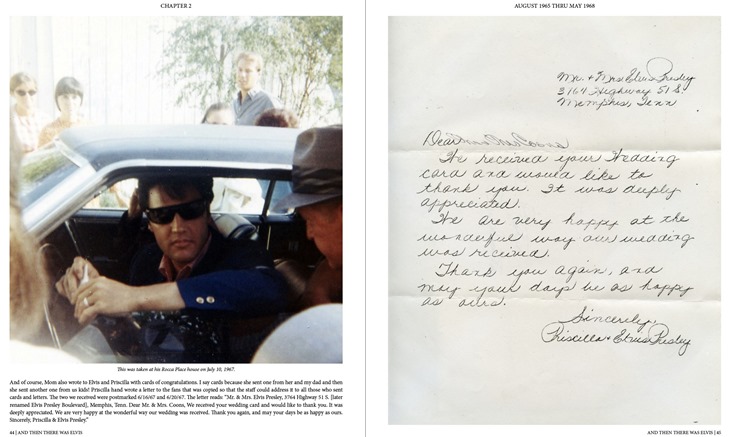 CHAPTER 2
This was taken at his Rocca Place house on July 10, 1967.
And of course, Mom also wrote to Elvis and Priscilla with cards of congratulations. I say cards because she sent one from her and my dad and then
she sent another one from us kids! Priscilla hand wrote a letter to the fans that was copied so that the staff could address it to all those who sent
cards and letters. The two we received were postmarked 6/16/67 and 6/20/67. The letter reads: "Mr. & Mrs. Elvis Presley, 3764 Highway 51 S. [later
renamed Elvis Presley Boulevard], Memphis, Tenn. Dear Mr. & Mrs. Coons, We received your wedding card and would like to thank you. It was
deeply appreciated. We are very happy at the wonderful way our wedding was received. Thank you again, and may your days be as happy as ours.
Sincerely, Priscilla & Elvis Presley."
44 | AND THEN THERE WAS ELVIS
AUGUST 1965 THRU MAY 1968
Mr. + Mrs Elvis Presley
3764 Highway 51 S.
Memphis, Tenn
Dear
We received your Wedding
card and would like to
thank you. It was deeply
appreciated.
We are very happy at the
wonderful way our wedding
was received.
Thank you again, and
may your days be as happy
as ours.
Sincerely,
Priscilla + Elvis Presley
AND THEN THERE WAS ELVIS | 45